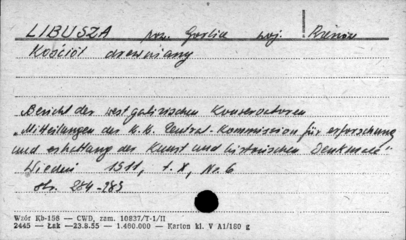 LIBUSZA pow. Gorlice woj. Rzeszów
Kościół drewniany
Bericht der westgalizischen Konservatoren
"Mitteilungen der K.K. Central-Kommission für erforschung
und erhaltung der Kunst und historischen Denkmale"
Wiedeń 1911, t. X, Nr. 6
str. 284-285
Wzór Kb-166 — CWD, zam. 10837/T-1/II
2445 — Łak — 23.8.55 — 1.400.000 — Karton kl. V A1/180 g